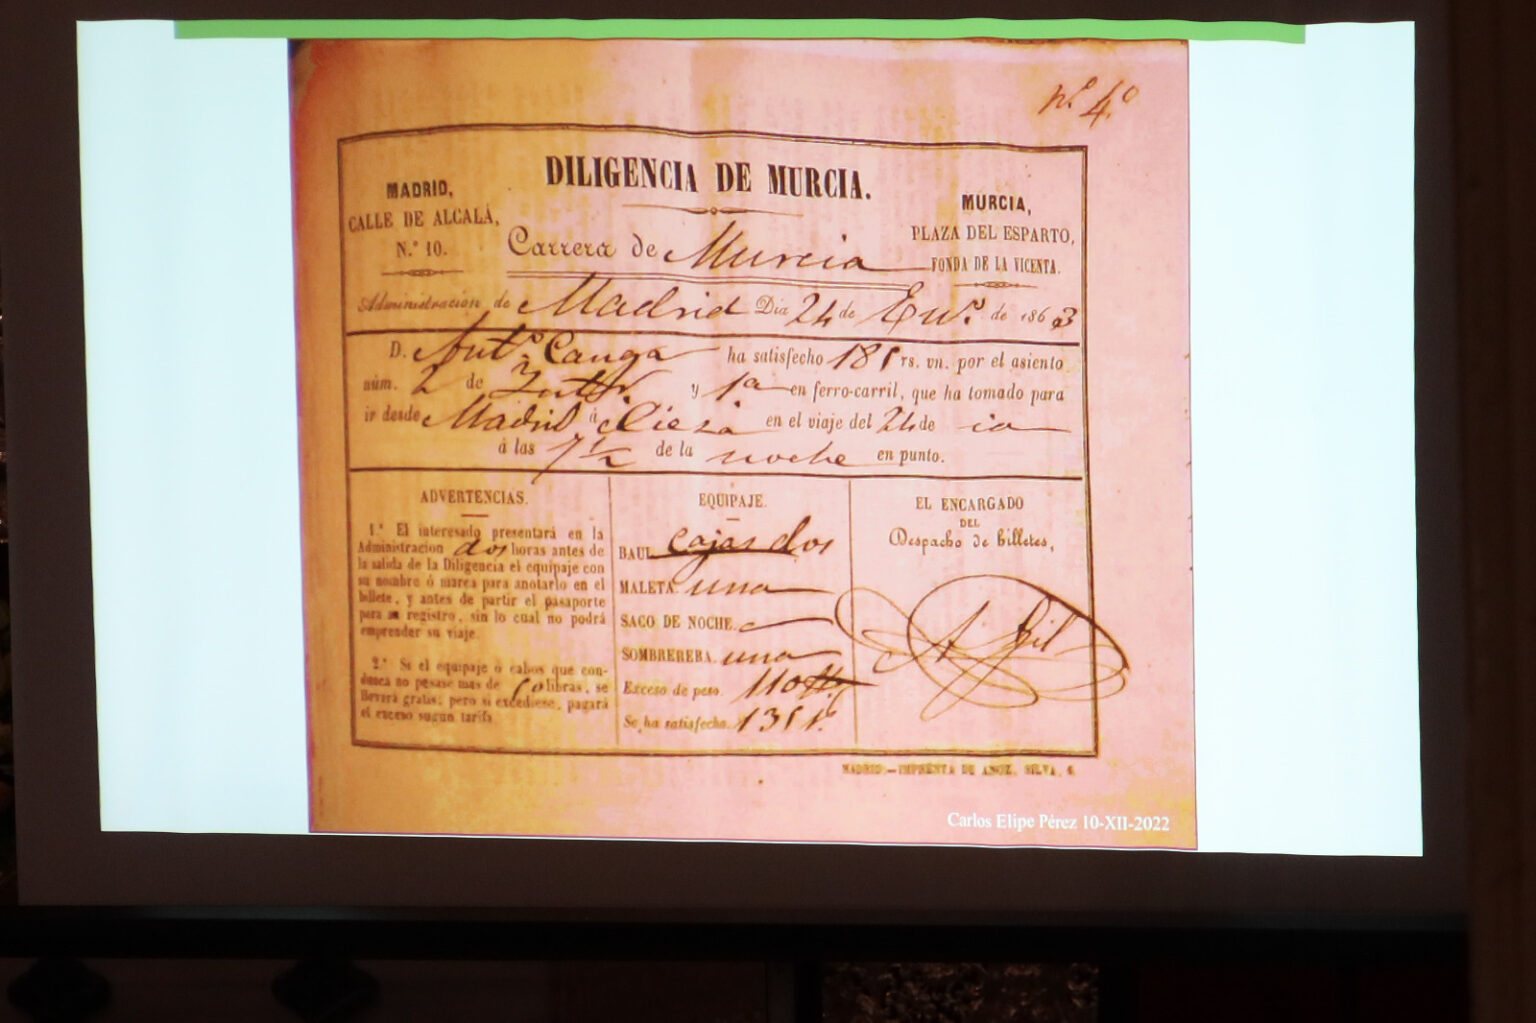 nº 4º
DILIGENCIA DE MURCIA.
MADRID,
CALLE DE ALCALÁ,
N.º 10.
MURCIA,
PLAZA DEL ESPARTO,
FONDA DE LA VICENTA.
Carrera de Murcia
Administración de Madrid Día 24 de En.º de 1863
D. Ant.º Canga ha satisfecho 181 rs. vn. por el asiento
núm. 2 de y 1ª en ferro-carril, que ha tomado para
ir desde Madrid á Cieza en el viaje del 24 de
á las 7 1/2 de la noche en punto.
ADVERTENCIAS.
1.ª El interesado presentará en la
Administracion dos horas antes de
la salida de la Diligencia el equipaje con
su nombre ó marca para anotarlo en el
billete, y antes de partir el pasaporte
para su registro, sin lo cual no podrá
emprender su viaje.
2.ª Si el equipaje ó cabos que con-
duzca no pesase mas de libras, se
llevará gratis; pero si excediese, pagará
el exceso segun tarifa.
EQUIPAJE.
BAUL cajas dos
MALETA una
SACO DE NOCHE.
SOMBRERERA. una
Exceso de peso. 110
Se ha satisfecho. 131
EL ENCARGADO
DEL
Despacho de billetes,
A Gil
MADRID.—IMPRENTA DE ANOZ, SILVA, 6.
Carlos Elipe Pérez 10-XII-2022